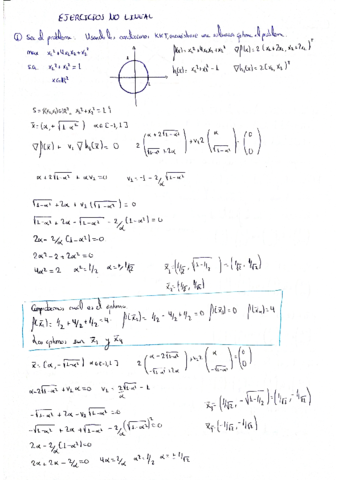 EJERCICIOS NO LINEAL
① Sea el problema. Usando las condiciones KKT, encontrar una solución óptima del problema.
max x₁²+4x₁x₂+x₂² f(x)=x₁²+4x₁x₂+x₂² ∇f(x)=2(x₁+2x₂, x₂+2x₁)ᵀ
s.a. x₁²+x₂²=1 h(x)=x₁²+x₂²-1 ∇h(x)=2(x₁,x₂)ᵀ
x∈ℝ²
x̄=(α,√1-α²) α∈[-1,1]
∇f(x̄)+v₁∇h(x̄)=0 2(α+2√1-α², √1-α²+2α)+v₁2(α, √1-α²)=(0, 0)
α+2√1-α²+αv₁=0 v₁=-1-2/α√1-α²
√1-α²+2α+v₁(√1-α²)=0
√1-α²+2α-√1-α²-2/α(1-α²)=0
2α-2/α(1-α²)=0
2α²-2+2α²=0
4α²=2 α²=1/2 α=±1/√2
Comprobemos cual es el optimo
f(x̄₁)=1/2+4/2+1/2=4 f(x̄₂)=1/2-4/2+1/2=0 f(x̄₃)=0 f(x̄₄)=4
Los optimos son x̄₁ y x̄₄
x̄=(α,-√1-α²) α∈[-1,1] 2(α-2√1-α², -√1-α²+2α)+v₁2(α, -√1-α²)=(0, 0)
α-2√1-α²+v₁α=0 v₁=2√1-α²/α-1
-√1-α²+2α-v₁√1-α²=0
-√1-α²+2α+√1-α²-2/α(√1-α²)²=0
2α-2/α(1-α²)=0
2α+2α-2/α=0 4α=2/α α²=1/2 α=±1/√2